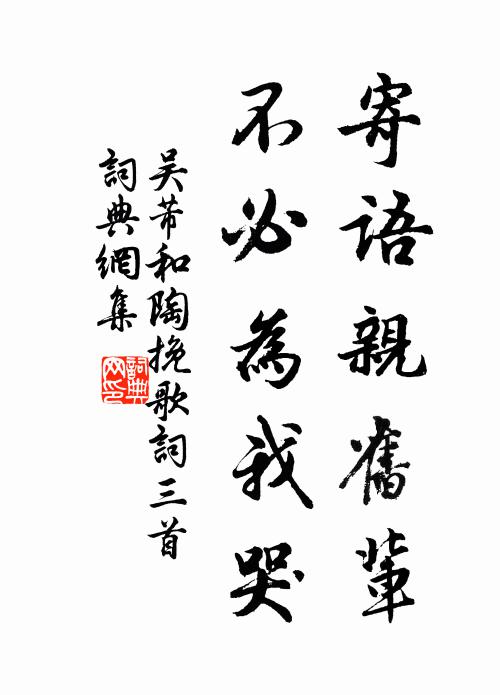 寄語親舊輩
不必為我哭
吴芾和陶挽歌詞三首
詞典網集
詞典網印